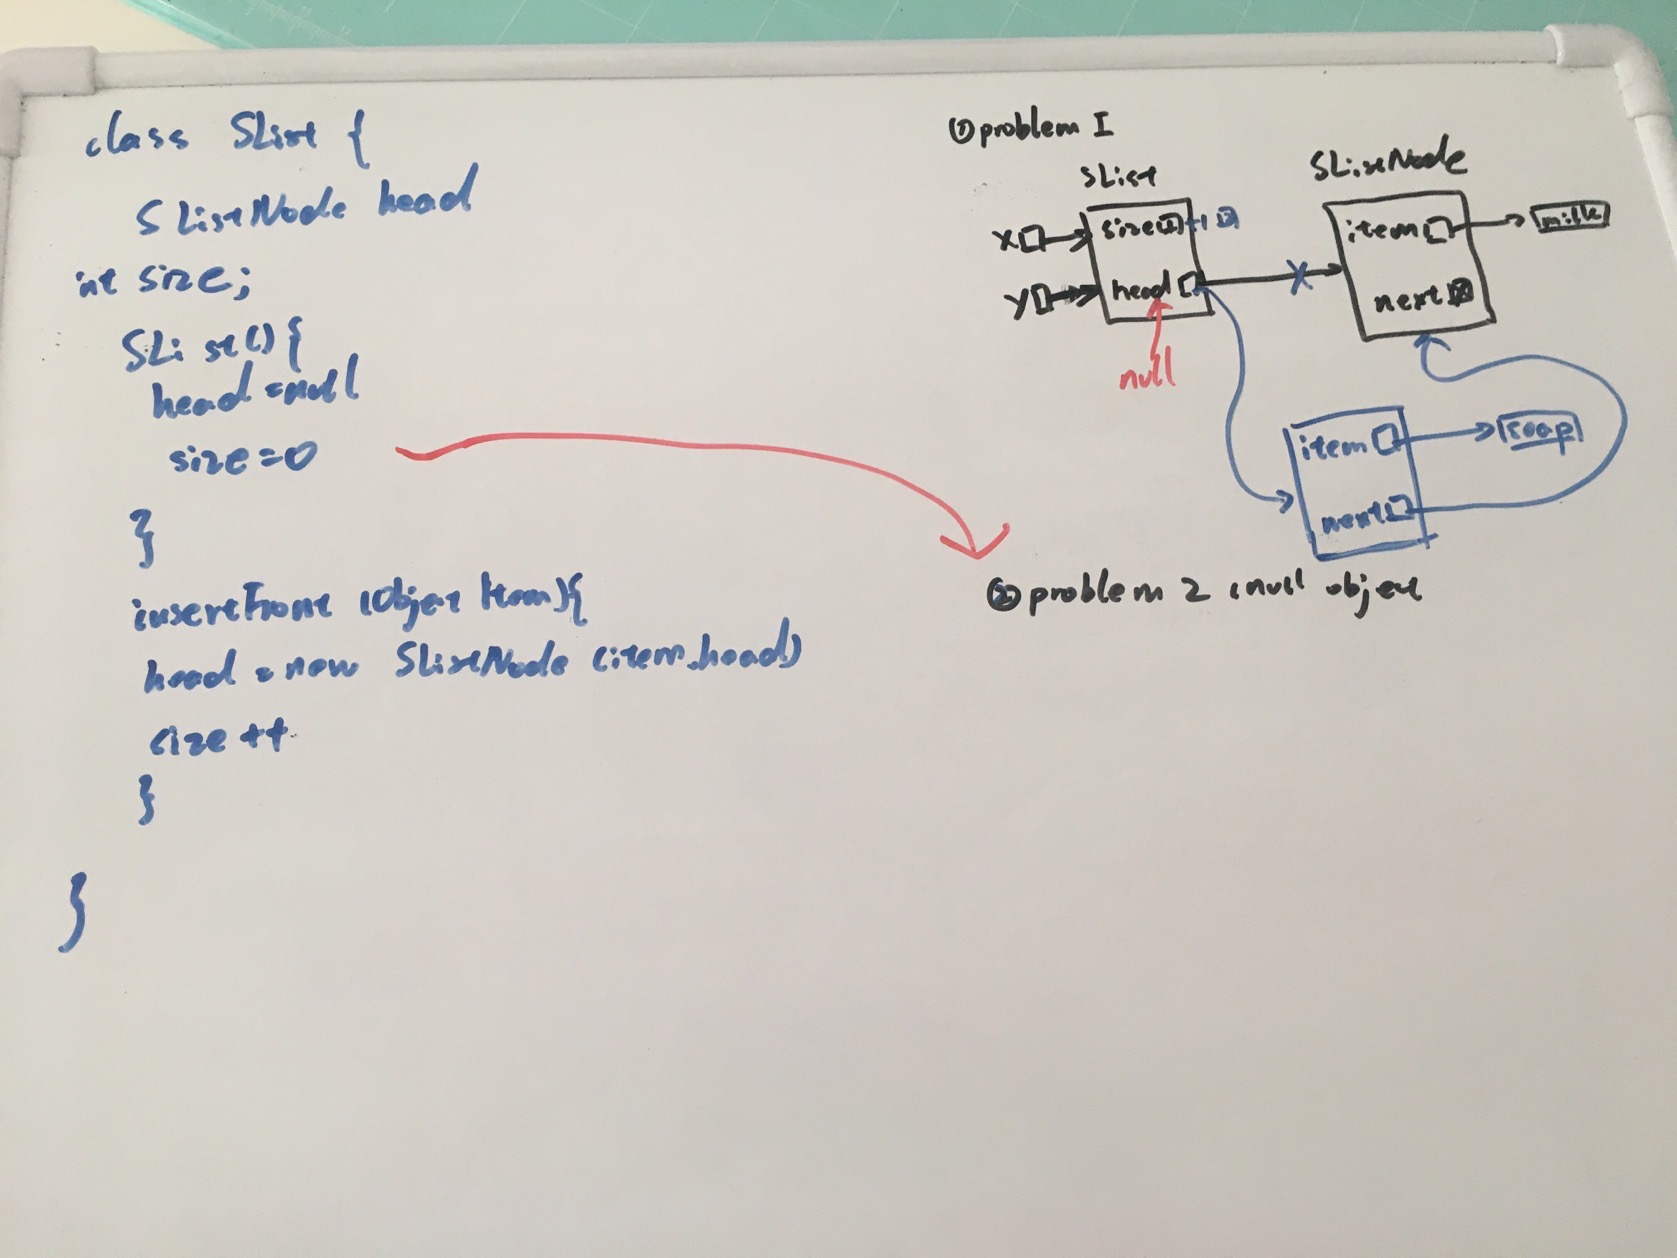 class SList {
SListNode head
int size;
SList() {
head = null
size = 0
}
insertFront (Object Item) {
head = new SListNode (item.head)
size ++
}
}
① problem I
SList
x
size 1 → 2
y
head
null
SListNode
item
milk
next
item
soap
next
② problem 2 (null object